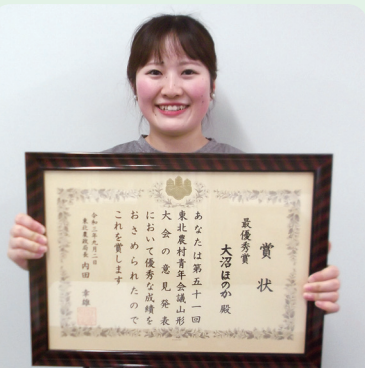 賞状
最優秀賞
大沼ほのか 殿
あなたは第五十一回
東北農村青年会議山形
大会の意見発表
において優秀な成績を
おさめられたので
これを賞します
令和三年九月二日
東北農政局長 内田 幸雄